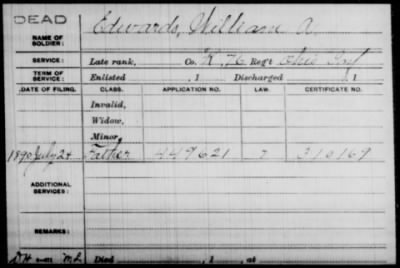 DEAD
NAME OF SOLDIER: Edwards, William A.
SERVICE: Late rank, Co. K, 76 Reg't Ohio Inf
TERM OF SERVICE: Enlisted , 1 Discharged , 1
DATE OF FILING. CLASS. APPLICATION NO. LAW. CERTIFICATE NO.
Invalid,
Widow,
Minor,
1890 July 24 Father 449621 310169
ADDITIONAL SERVICES:
REMARKS:
Died , 1 , at